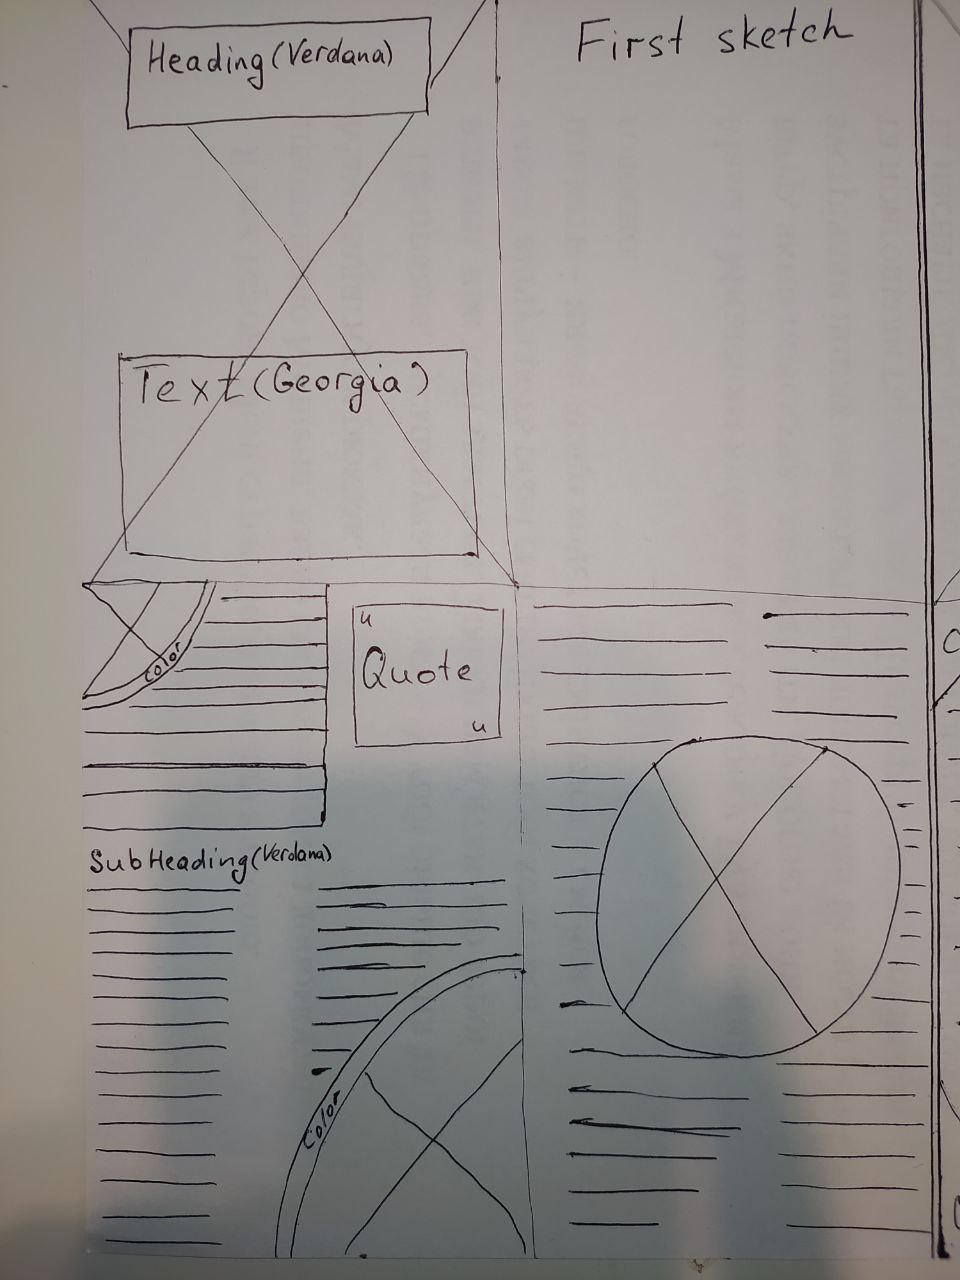 Heading (Verdana)
First sketch
Text (Georgia)
Color
u
Quote
u
SubHeading (Verdana)
Color